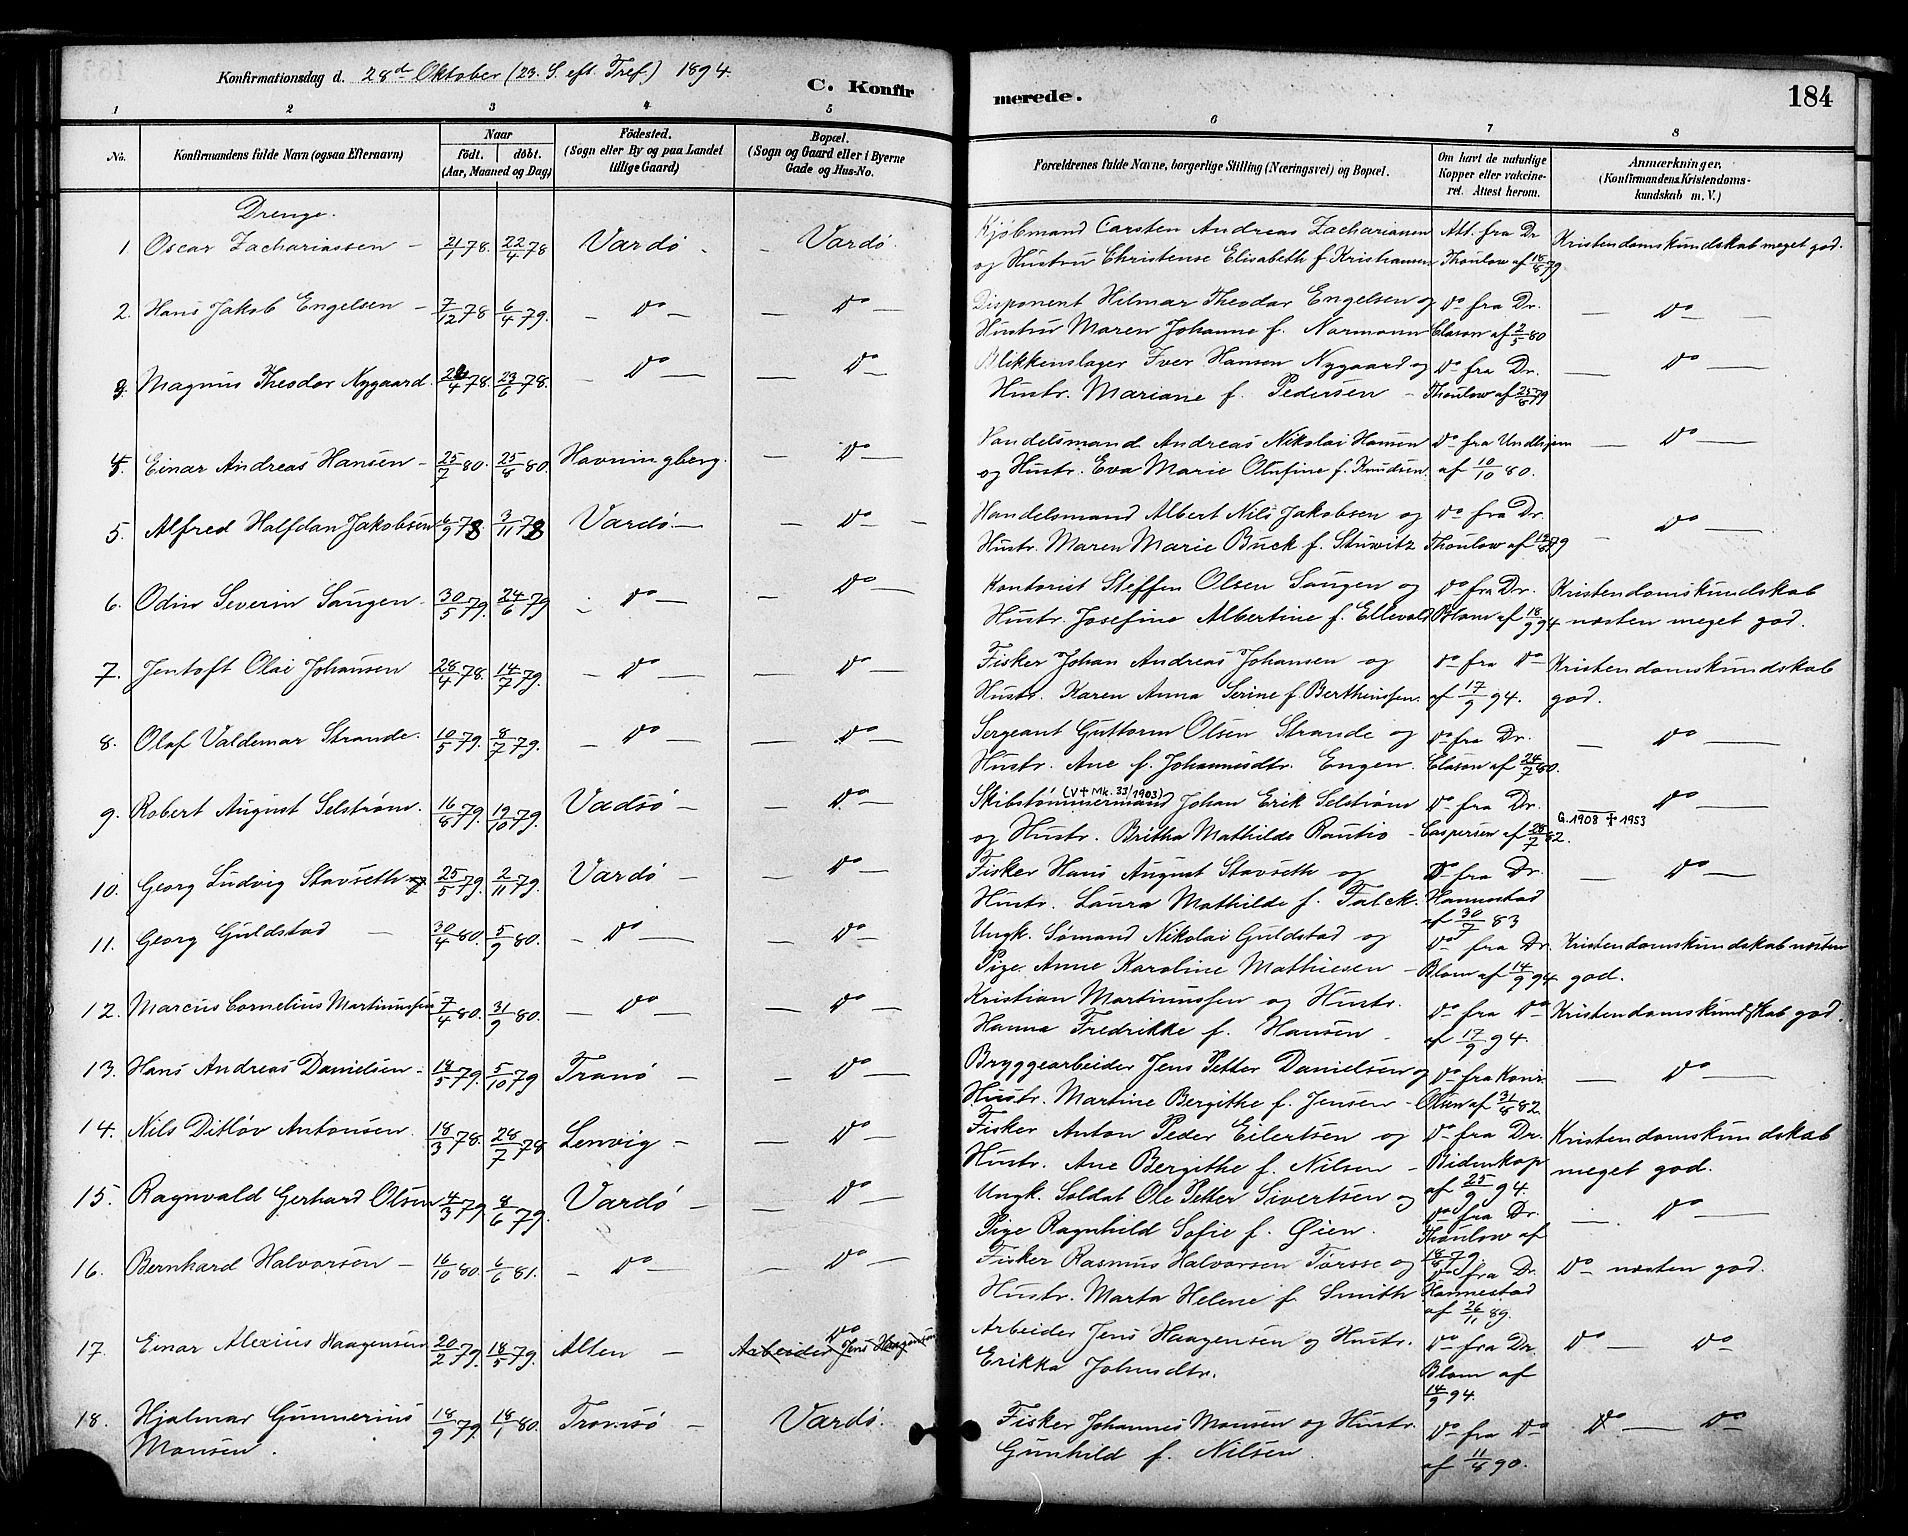 Konfirmationsdag d. 28de Oktober (23. S. eft. Tref.) 1894.
C. Konfirmerede.
184
1 2 3 4 5 6 7 8
No.
Konfirmandens fulde Navn (ogsaa Efternavn)
Naar
födt. döbt.
(Aar, Maaned og Dag)
Födested.
(Sogn eller By og paa Landet
tillige Gaard)
Bopæl.
(Sogn og Gaard eller i Byerne
Gade og Hus-No.
Forældrenes fulde Navne, borgerlige Stilling (Næringsvei) og Bopæl.
Om havt de naturlige
Kopper eller vakcine-
ret. Attest herom.
Anmærkninger.
(Konfirmandens Kristendoms-
kundskab m. V.)
Drenge.
1. Oscar Zachariassen – 2/1 78. 22/4 78 Vardö – – Vardö. Kjöbmand Carsten Andreas Zachariassen Att. fra Dr Kristendomskundskab meget god.
og Hustru Christense Elisabeth f. Kristiansen Thoulow af 18/8 79
2. Hans Jakob Engelsen – 7/12 78 6/4 79. – Do – – Do – Disponent Hilmar Theodor Engelsen og Do fra Dr. – Do –
Hustru Maren Johanne f. Normann Clason af 2/5 80
3. Magnus Theodor Nygaard. /4 78. 23/6 78. – Do – – Do – Blikkenslager Iver Hansen Nygaard og Do fra Dr. – Do –
Hustr. Mariane f. Pedersen – Thoulow af 25/8 79
4. Einar Andreas Hansen – 25/7 80. 25/8 80. Havningberg. – Do – Handelsmand Andreas Nikolai Hansen Do fra Undhjem – Do –
og Hustr. Eva Marie Olufine f. Knudsen. af 10/10 80.
5. Alfred Halfdan Jakobsen 6/9 78 3/11 78 Vardö. – – Do – Handelsmand Albert Nils Jakobsen og Do fra Dr. – Do –
Hustr. Maren Marie Buck f. Stuwitz Thoulow af 79
6. Odin Severin Saugen. 30/5 79. 24/6 79 – Do – – Do – Kontorist Steffen Olsen Saugen og Do fra Dr. Kristendomskundskab
Hustr. Josefine Albertine f. Ellevold Blom af 18/9 94 næsten meget god.
7. Jentoft Olai Johansen 28/4 78. 14/7 79. – Do – – Do – Fisker Johan Andreas Johansen og Do fra Do Kristendomskundskab
Hustr. Karen Anna Serine f. Berthinssen. af 17/9 94. god.
8. Olaf Valdemar Strande. 10/5 79. 8/7 79. – Do – – Do – Sergeant Guttorm Olsen Strande og Do fra Dr. – Do –
Hustr. Ane f. Johannesdtr. Engen. Clason af 24/7 80.
(V+ Mk. 33/1903)
9. Robert August Selström. 16/8 79. 19/10 79. Vadsö – – Do – Skibstömmermand Johan Erik Selström Do fra Dr. – Do –
og Hustr. Britha Mathilde Rautio – Caspersen af 28/7 82. G. 1908 ✝ 1953
10. Georg Ludvig Stavseth 25/5 79. 2/11 79. Vardö – – Do – Fisker Hans August Stavseth og Do fra Dr. – Do –
Hustr. Laura Mathilde f. Falck. Hannestad
af 30/7 83
11. Georg Guldstad – 30/4 80. 5/9 80. – Do – – Do – Ungk. Sömand Nikolai Guldstad og Do fra Dr. Kristendomskundskab næsten
Pige Anne Karoline Mathiesen – Blom af 14/9 94. god.
12. Marcus Cornelius Martinussen 7/4 80. 31/9 80. – Do – – Do – Kristian Martinussen og Hustr. Do fra Do Kristendomskundskab god.
Hanna Fredrikke f. Hansen – af 17/9 94.
13. Hans Andreas Danielsen – 18/5 79. 5/10 79 Tranö – – Do – Bryggearbeider Jens Petter Danielsen og Do fra – Do –
Hustr. Martine Bergithe f. Jensen – Olsen af 31/8 82.
14. Nils Ditlöv Antonsen. 18/3 78. 28/7 78 Lenvig – – Do – Fisker Anton Peder Eilertsen og Do fra Dr. Kristendomskundskab
Hustr. Ane Bergithe f. Nilsen – Bidenkap meget god.
af 25/9 94.
15. Ragnvald Gerhard Olsen 4/3 79 8/6 79. Vardö – – Do – Ungk. Soldat Ole Petter Sivertsen og Do fra Dr. – Do –
Pige Ragnhild Sofie f. Øien. Thoulow af
18/8 79.
16. Bernhard Halvorsen – 16/10 80. 6/6 81. – Do – – Do – Fisker Rasmus Halvorsen Torsse og Do fra Dr. Do næsten god.
Hustr. Marta Helene f. Smith Hannestad
af 26/11 89.
17. Einar Alexius Haagensen 20/2 79. 18/5 79. Alten – Do Arbeider Jens Haagensen Arbeider Jens Haagensen og Hustr. Do fra Dr. Do – Do
Erikka Johnsdtr. Blom af
14/9 94.
18. Hjalmar Gunnerius 18/9 79. 18/1 80. Tromsö – Vardö. Fisker Johannes Monsen og Hustr. Do fra Do Do – Do
Monsen. Gunhild f. Nilsen. af 11/8 90.